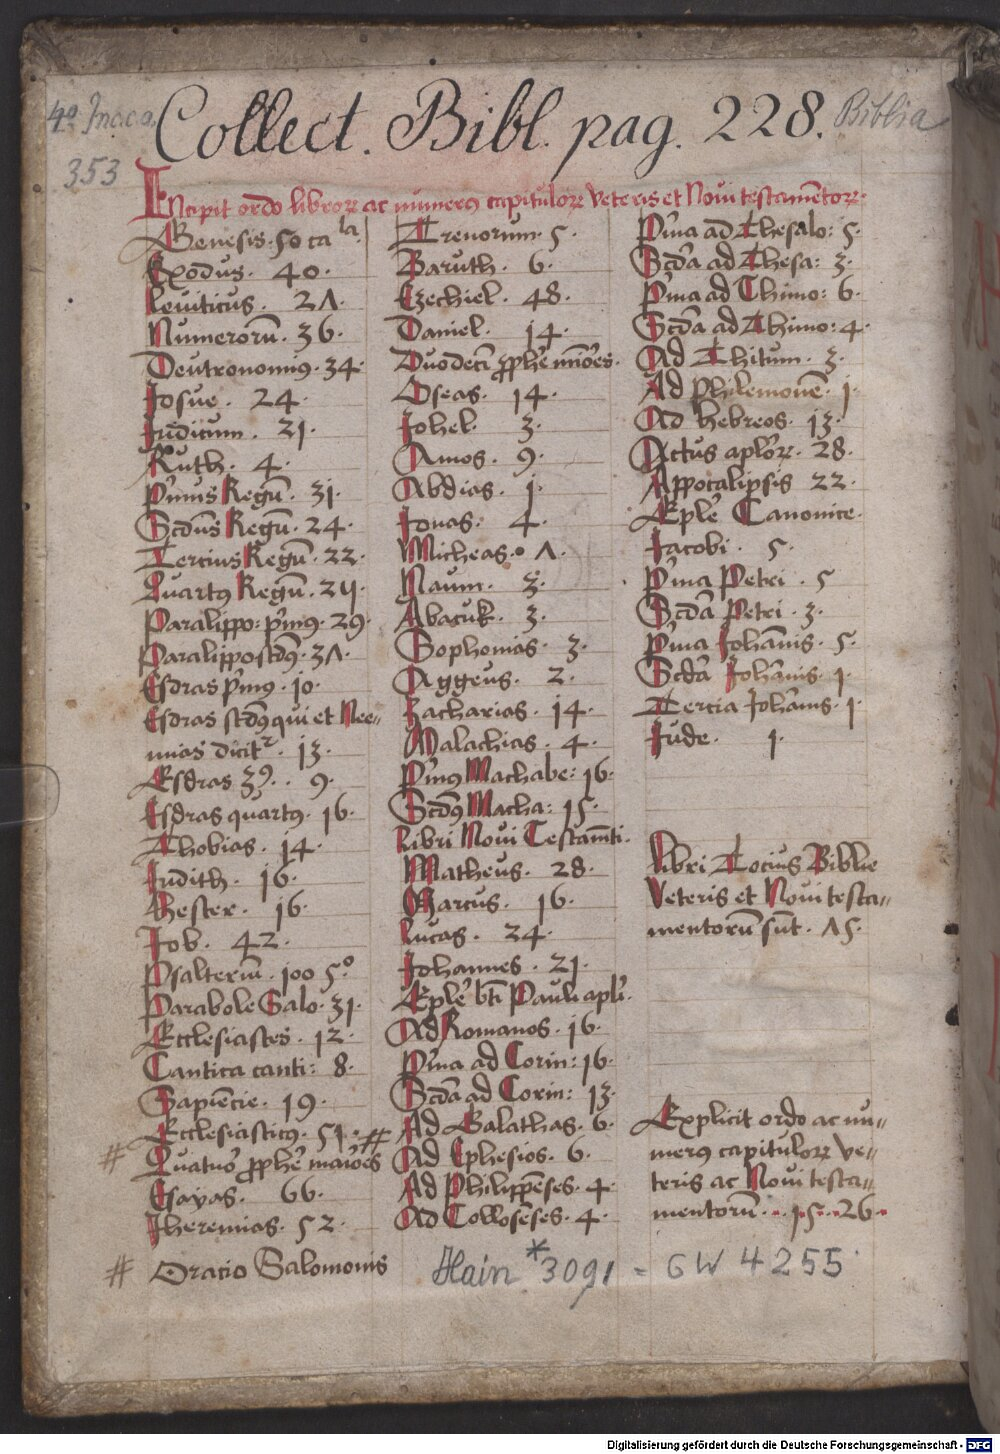 4º Inc.c.a. Collect. Bibl. pag. 228. Biblia
353
Incipit ordo libroꝝ ac numerꝰ capituloꝝ Veteris et Noui testamētoꝝ·
Genesis· 50 ca la·
Exodus· 40·
Leuiticus· 2Λ·
Numerorū· 36·
Deutronomiꝰ· 34·
Iosue· 24·
Iudicum· 21·
Ruth· 4·
P'mus Regū· 31·
Scdūs Regū· 24·
Tercius Regū· 22·
Quartꝰ Regū· 25·
Paralippo: p'mꝰ· 29·
Paralippo scdꝰ· 3Λ·
Esdras p'mꝰ· 10·
Esdras scdꝰ qui et Nee„
mias dicit᷑· 13·
Esdras 3ꝰ· 9·
Esdras quartus· 16·
Thobias· 14·
Iudith· 16·
Hester· 16·
Iob· 42·
Psalteriū· 100 5º
Parabole Salo· 31·
Ecclesiastes· 12·
Cantica canti: 8·
Sapiēcie· 19·
Ecclesiasticꝰ· 51· #
# Quatuor ꝓphē maiōes
Esayas· 66·
Iheremias· 52·
# Oratio Salomonis
Trenorum· 5·
Baruth· 6·
Ezechiel· 48·
Daniel· 14·
Duodecī ꝓphē mīōes·
Oseas· 14·
Iohel· 3·
Amos· 9·
Abdias· 1·
Ionas· 4·
Micheas· Λ·
Naum· 3·
Abacuk· 3·
Sophonias· 3·
Aggeus· 2·
Zacharias· 14·
Malachias· 4·
P'mꝰ Machabe: 16·
Scdꝰ Macha: 15·
Libri Noui Testamēti·
Matheus· 28·
Marcus· 16·
Lucas· 24·
Iohannes· 21·
Eplē bti Pauli apli·
Ad Romanos· 16·
P'ma ad Corin: 16·
Scdā ad Corin: 13·
Ad Galathas· 6·
Ad Ephesios· 6·
Ad Philippēses· 4·
Ad Collosēses· 4·
P'ma ad Thesalo: 5·
Scdā ad Thesa: 3·
P'ma ad Thimo: 6·
Scdā ad Thimo: 4·
Ad Thitum· 3·
Ad Philemonē· 1·
Ad hebreos· 13·
Actus aplōꝝ· 28·
Appocalipsis 22·
Eplē Canonice·
Iacobi· 5·
P'ma Petri· 5
Scdā Petri· 3·
P'ma Iohānis· 5·
Scdā Iohānis· 1·
Tercia Iohānis· 1·
Iude· 1·
Libri Tocius Biblie
Veteris et Noui testa„
mentorū sūt· Λ5·
Explicit ordo ac nu„
merꝰ capituloꝝ ve„
teris ac Noui testa„
mentorū· 15· 26·
Hain *3091 = GW 4255
Digitalisierung gefördert durch die Deutsche Forschungsgemeinschaft - DFG